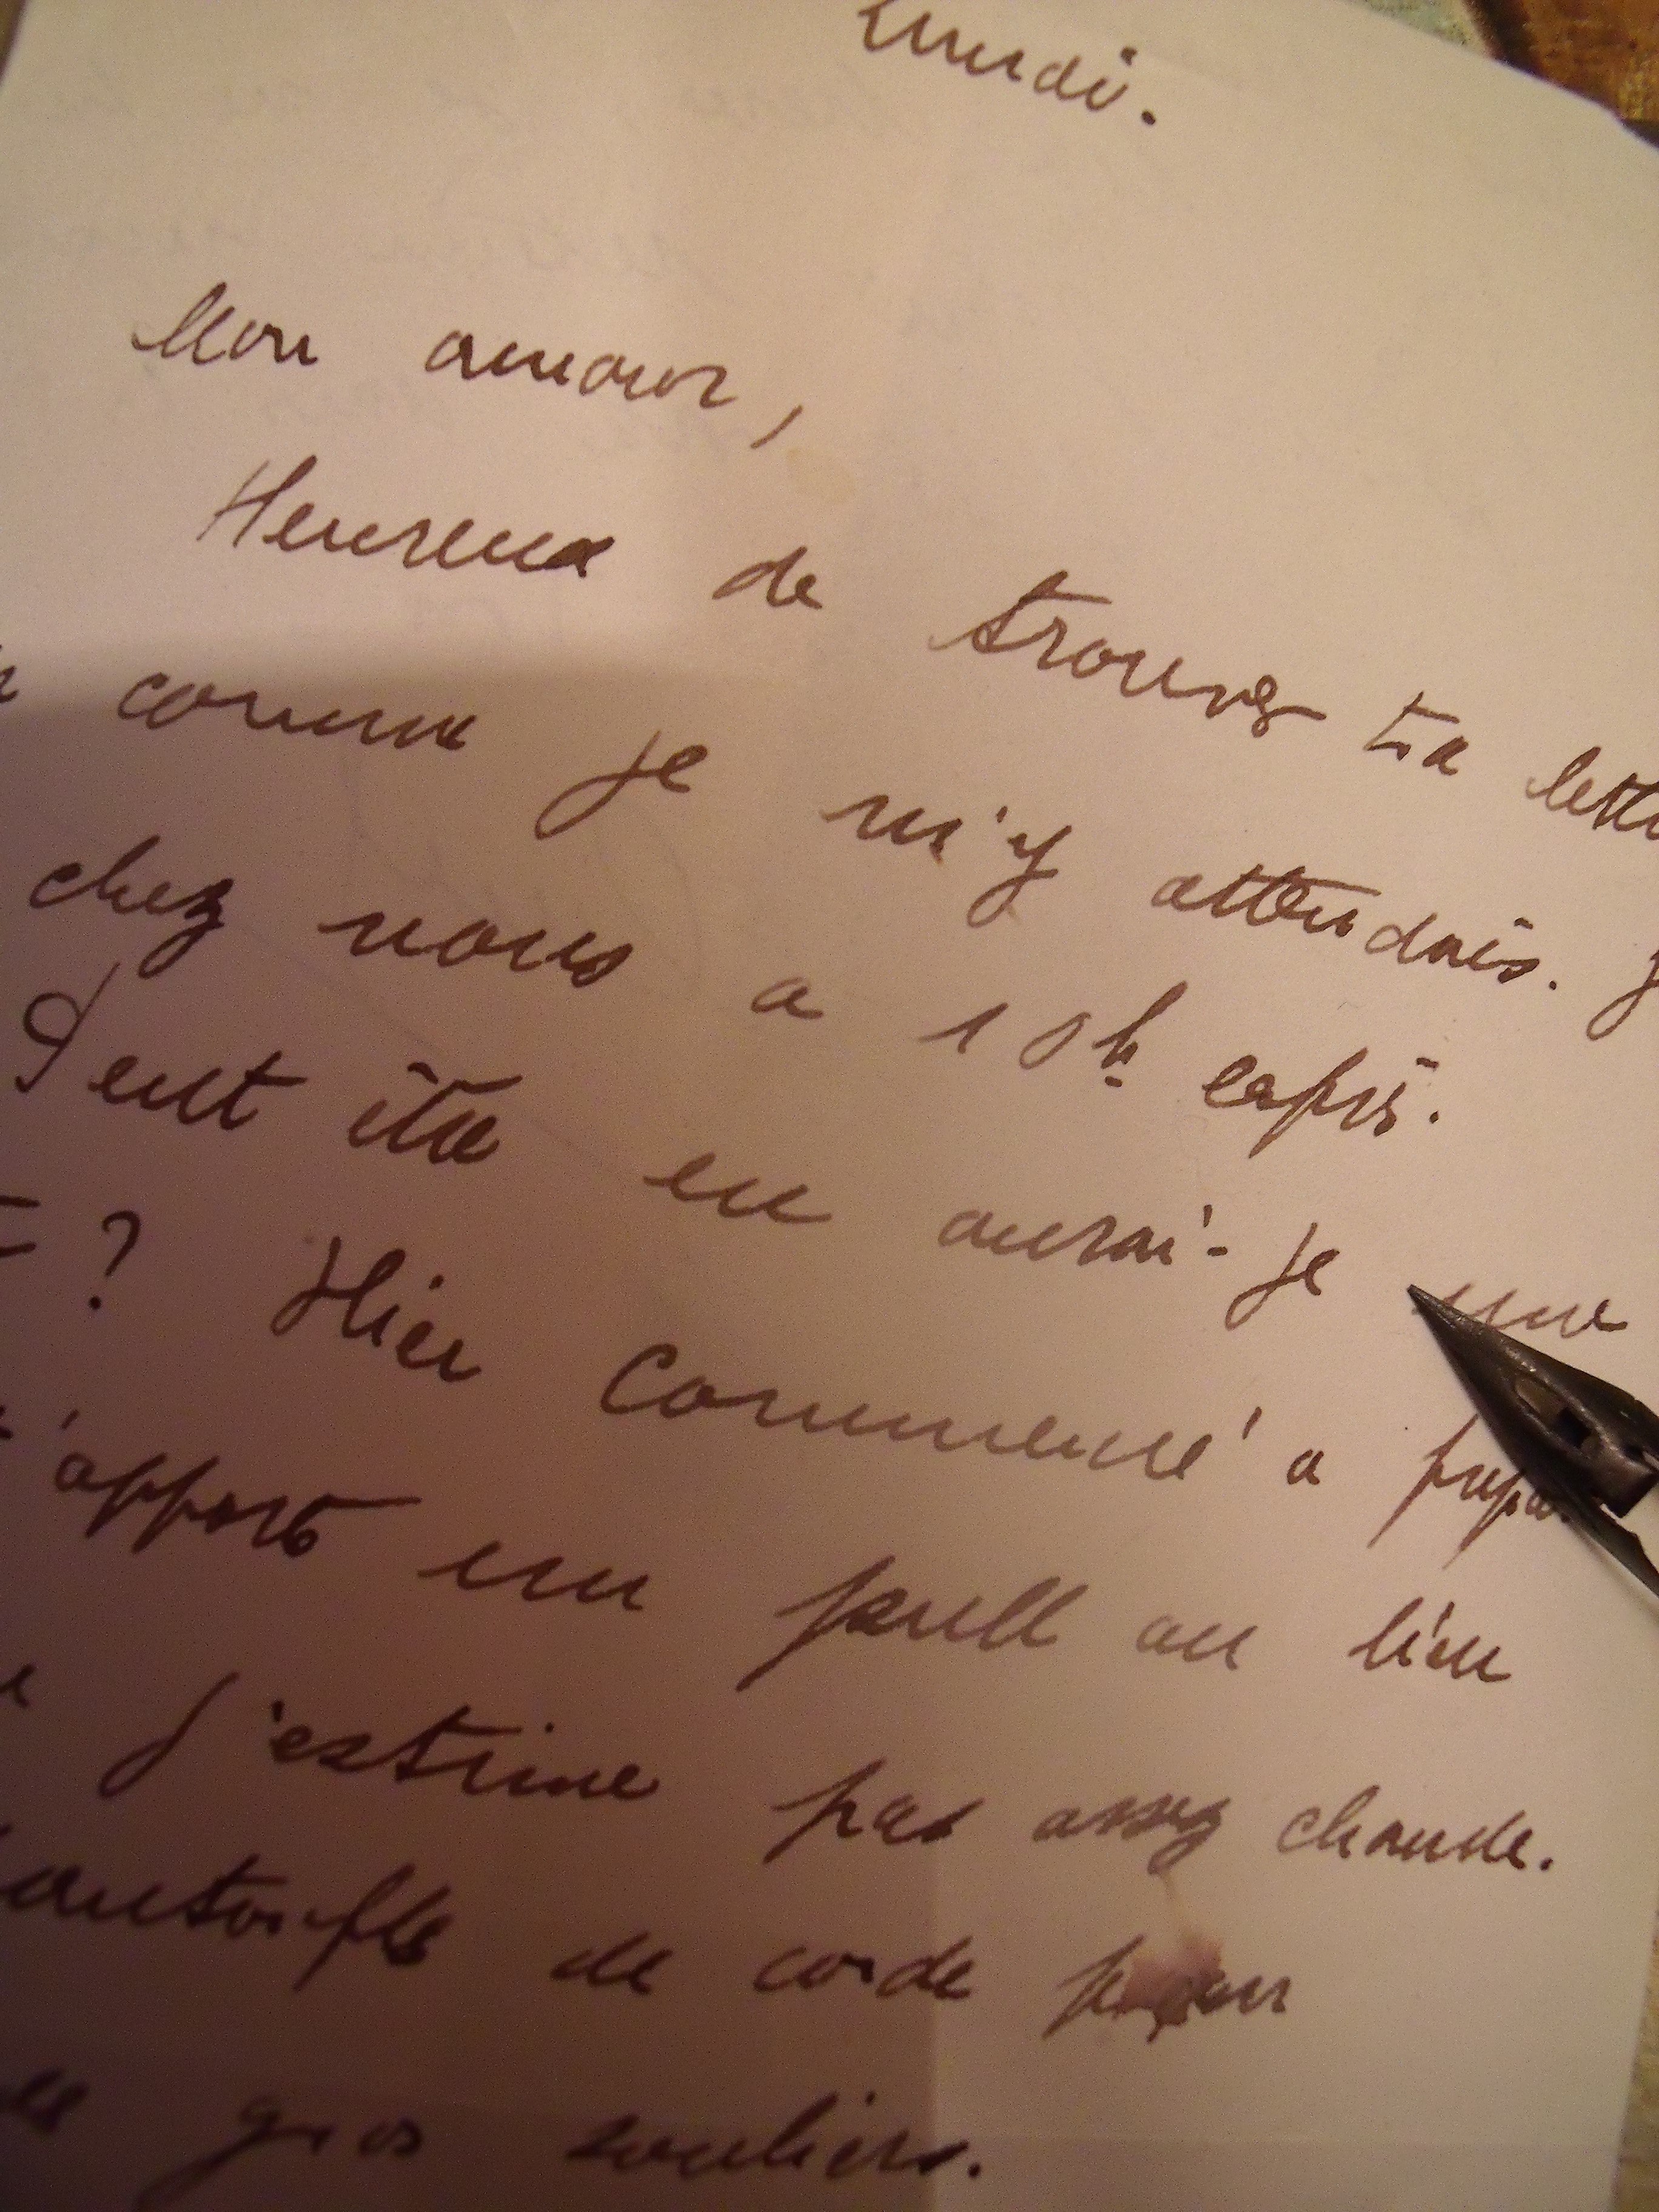 Lundi.
Mon amour,
Heureux de trouver ta lett
comme je m'y attendais. J
chez nous a 10h
Peut être en aurai-je une
? Hier commencé a prépa
'apporte un pull au lieu
j'estime pas assez chaude.
de corde pour
gros souliers.